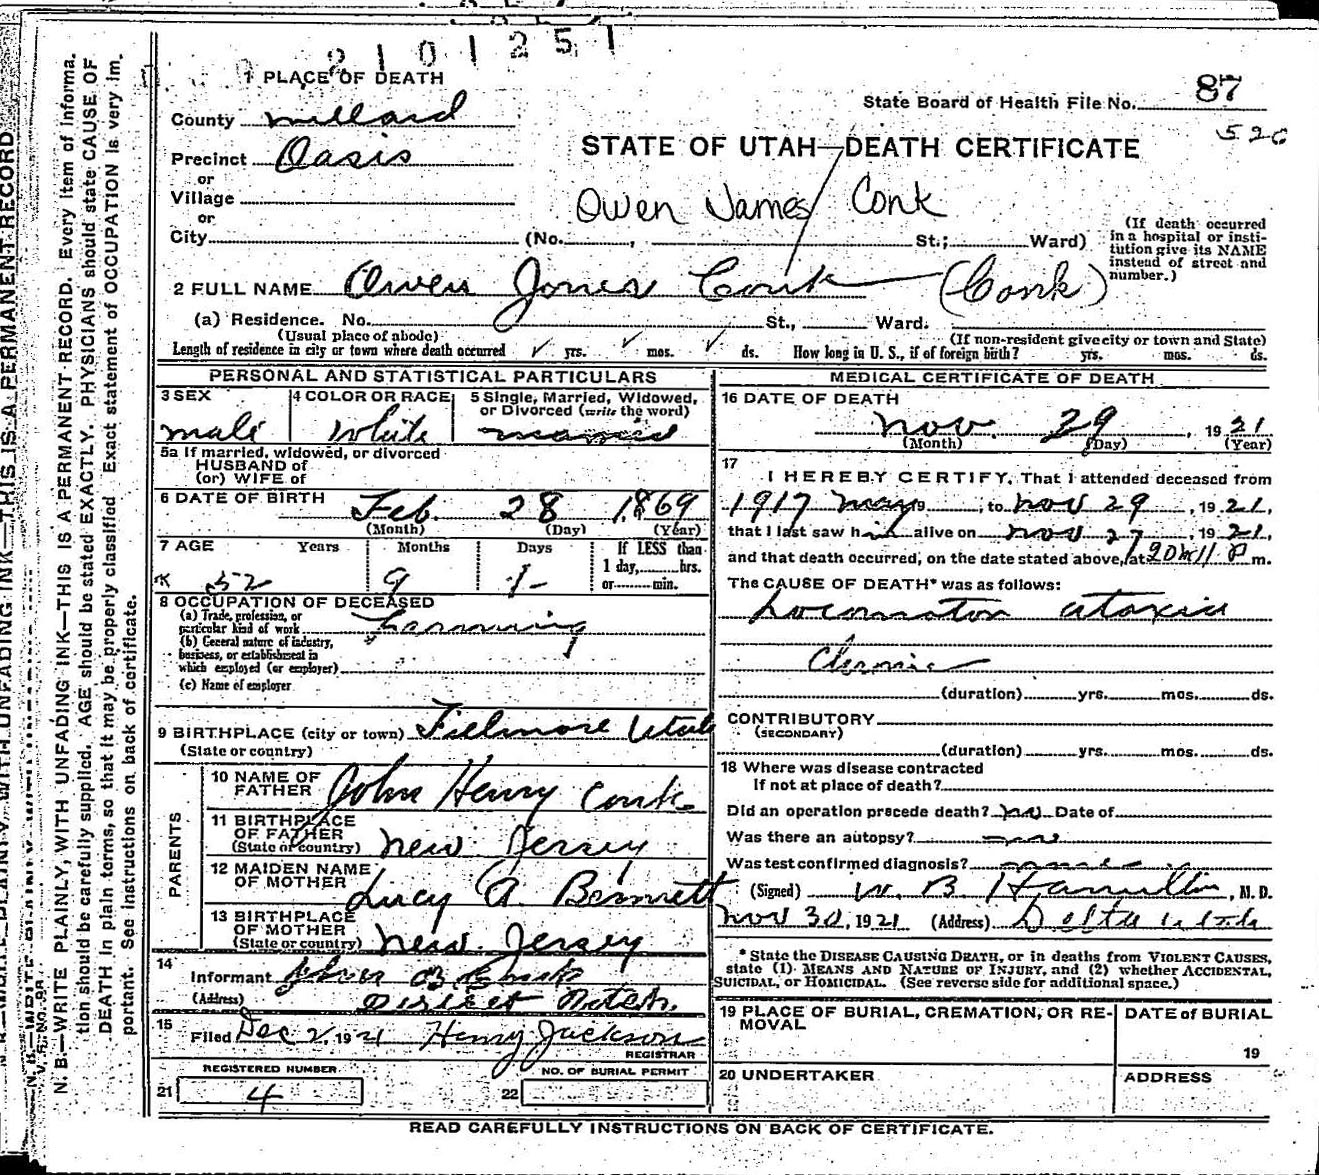 2101251
1 PLACE OF DEATH
State Board of Health File No. 87
526
County Millard
STATE OF UTAH—DEATH CERTIFICATE
Precinct Oasis
or
Village
Owen James Conk
or
City (No. , St.; Ward)
(If death occurred in a hospital or insti-
tution give its NAME
instead of street and
number.)
2 FULL NAME Owen Jones Conk (Conk)
(a) Residence. No. St., Ward.
(Usual place of abode) (If non-resident give city or town and State)
Length of residence in city or town where death occurred ✓ yrs. ✓ mos. ✓ ds. How long in U. S., if of foreign birth? yrs. mos. ds.
PERSONAL AND STATISTICAL PARTICULARS
3 SEX 4 COLOR OR RACE 5 Single, Married, Widowed,
or Divorced (write the word)
male White married
5a If married, widowed, or divorced
HUSBAND of
(or) WIFE of
6 DATE OF BIRTH Feb. 28 1869
(Month) (Day) (Year)
7 AGE Years Months Days If LESS than
1 day, hrs.
or min.
52 9 1
8 OCCUPATION OF DECEASED
(a) Trade, profession, or
particular kind of work Farming
(b) General nature of industry,
business, or establishment in
which employed (or employer)
(c) Name of employer
9 BIRTHPLACE (city or town) Fillmore Utah
(State or country)
PARENTS
10 NAME OF
FATHER John Henry Conk
11 BIRTHPLACE
OF FATHER
(State or country) New Jersey
12 MAIDEN NAME
OF MOTHER Lucy A. Bennett
13 BIRTHPLACE
OF MOTHER
(State or country) New Jersey
14
Informant
(Address)
15
Filed Dec 2, 1921 Henry Jackson
REGISTRAR
REGISTERED NUMBER NO. OF BURIAL PERMIT
21 4 22
MEDICAL CERTIFICATE OF DEATH
16 DATE OF DEATH
Nov. 29, 1921
(Month) (Day) (Year)
17
I HEREBY CERTIFY, That I attended deceased from
1917 May 19, to Nov 29, 1921,
that I last saw him alive on Nov 27, 1921,
and that death occurred, on the date stated above, at P m.
The CAUSE OF DEATH* was as follows:
Locomotor ataxia
Chronic
(duration) yrs. mos. ds.
CONTRIBUTORY
(SECONDARY)
(duration) yrs. mos. ds.
18 Where was disease contracted
If not at place of death?
Did an operation precede death? no Date of
Was there an autopsy? no
Was test confirmed diagnosis?
(Signed) W. B. Hamilton, M. D.
Nov 30, 1921 (Address) Delta Utah
* State the DISEASE CAUSING DEATH, or in deaths from VIOLENT CAUSES,
state (1) MEANS AND NATURE OF INJURY, and (2) whether ACCIDENTAL,
SUICIDAL, or HOMICIDAL. (See reverse side for additional space.)
19 PLACE OF BURIAL, CREMATION, OR RE-
MOVAL
DATE of BURIAL
19
20 UNDERTAKER ADDRESS
READ CAREFULLY INSTRUCTIONS ON BACK OF CERTIFICATE.
N. B.—WRITE PLAINLY, WITH UNFADING INK—THIS IS A PERMANENT RECORD. Every item of informa-
tion should be carefully supplied. AGE should be stated EXACTLY. PHYSICIANS should state CAUSE OF
DEATH in plain terms, so that it may be properly classified. Exact statement of OCCUPATION is very im-
portant. See instructions on back of certificate.